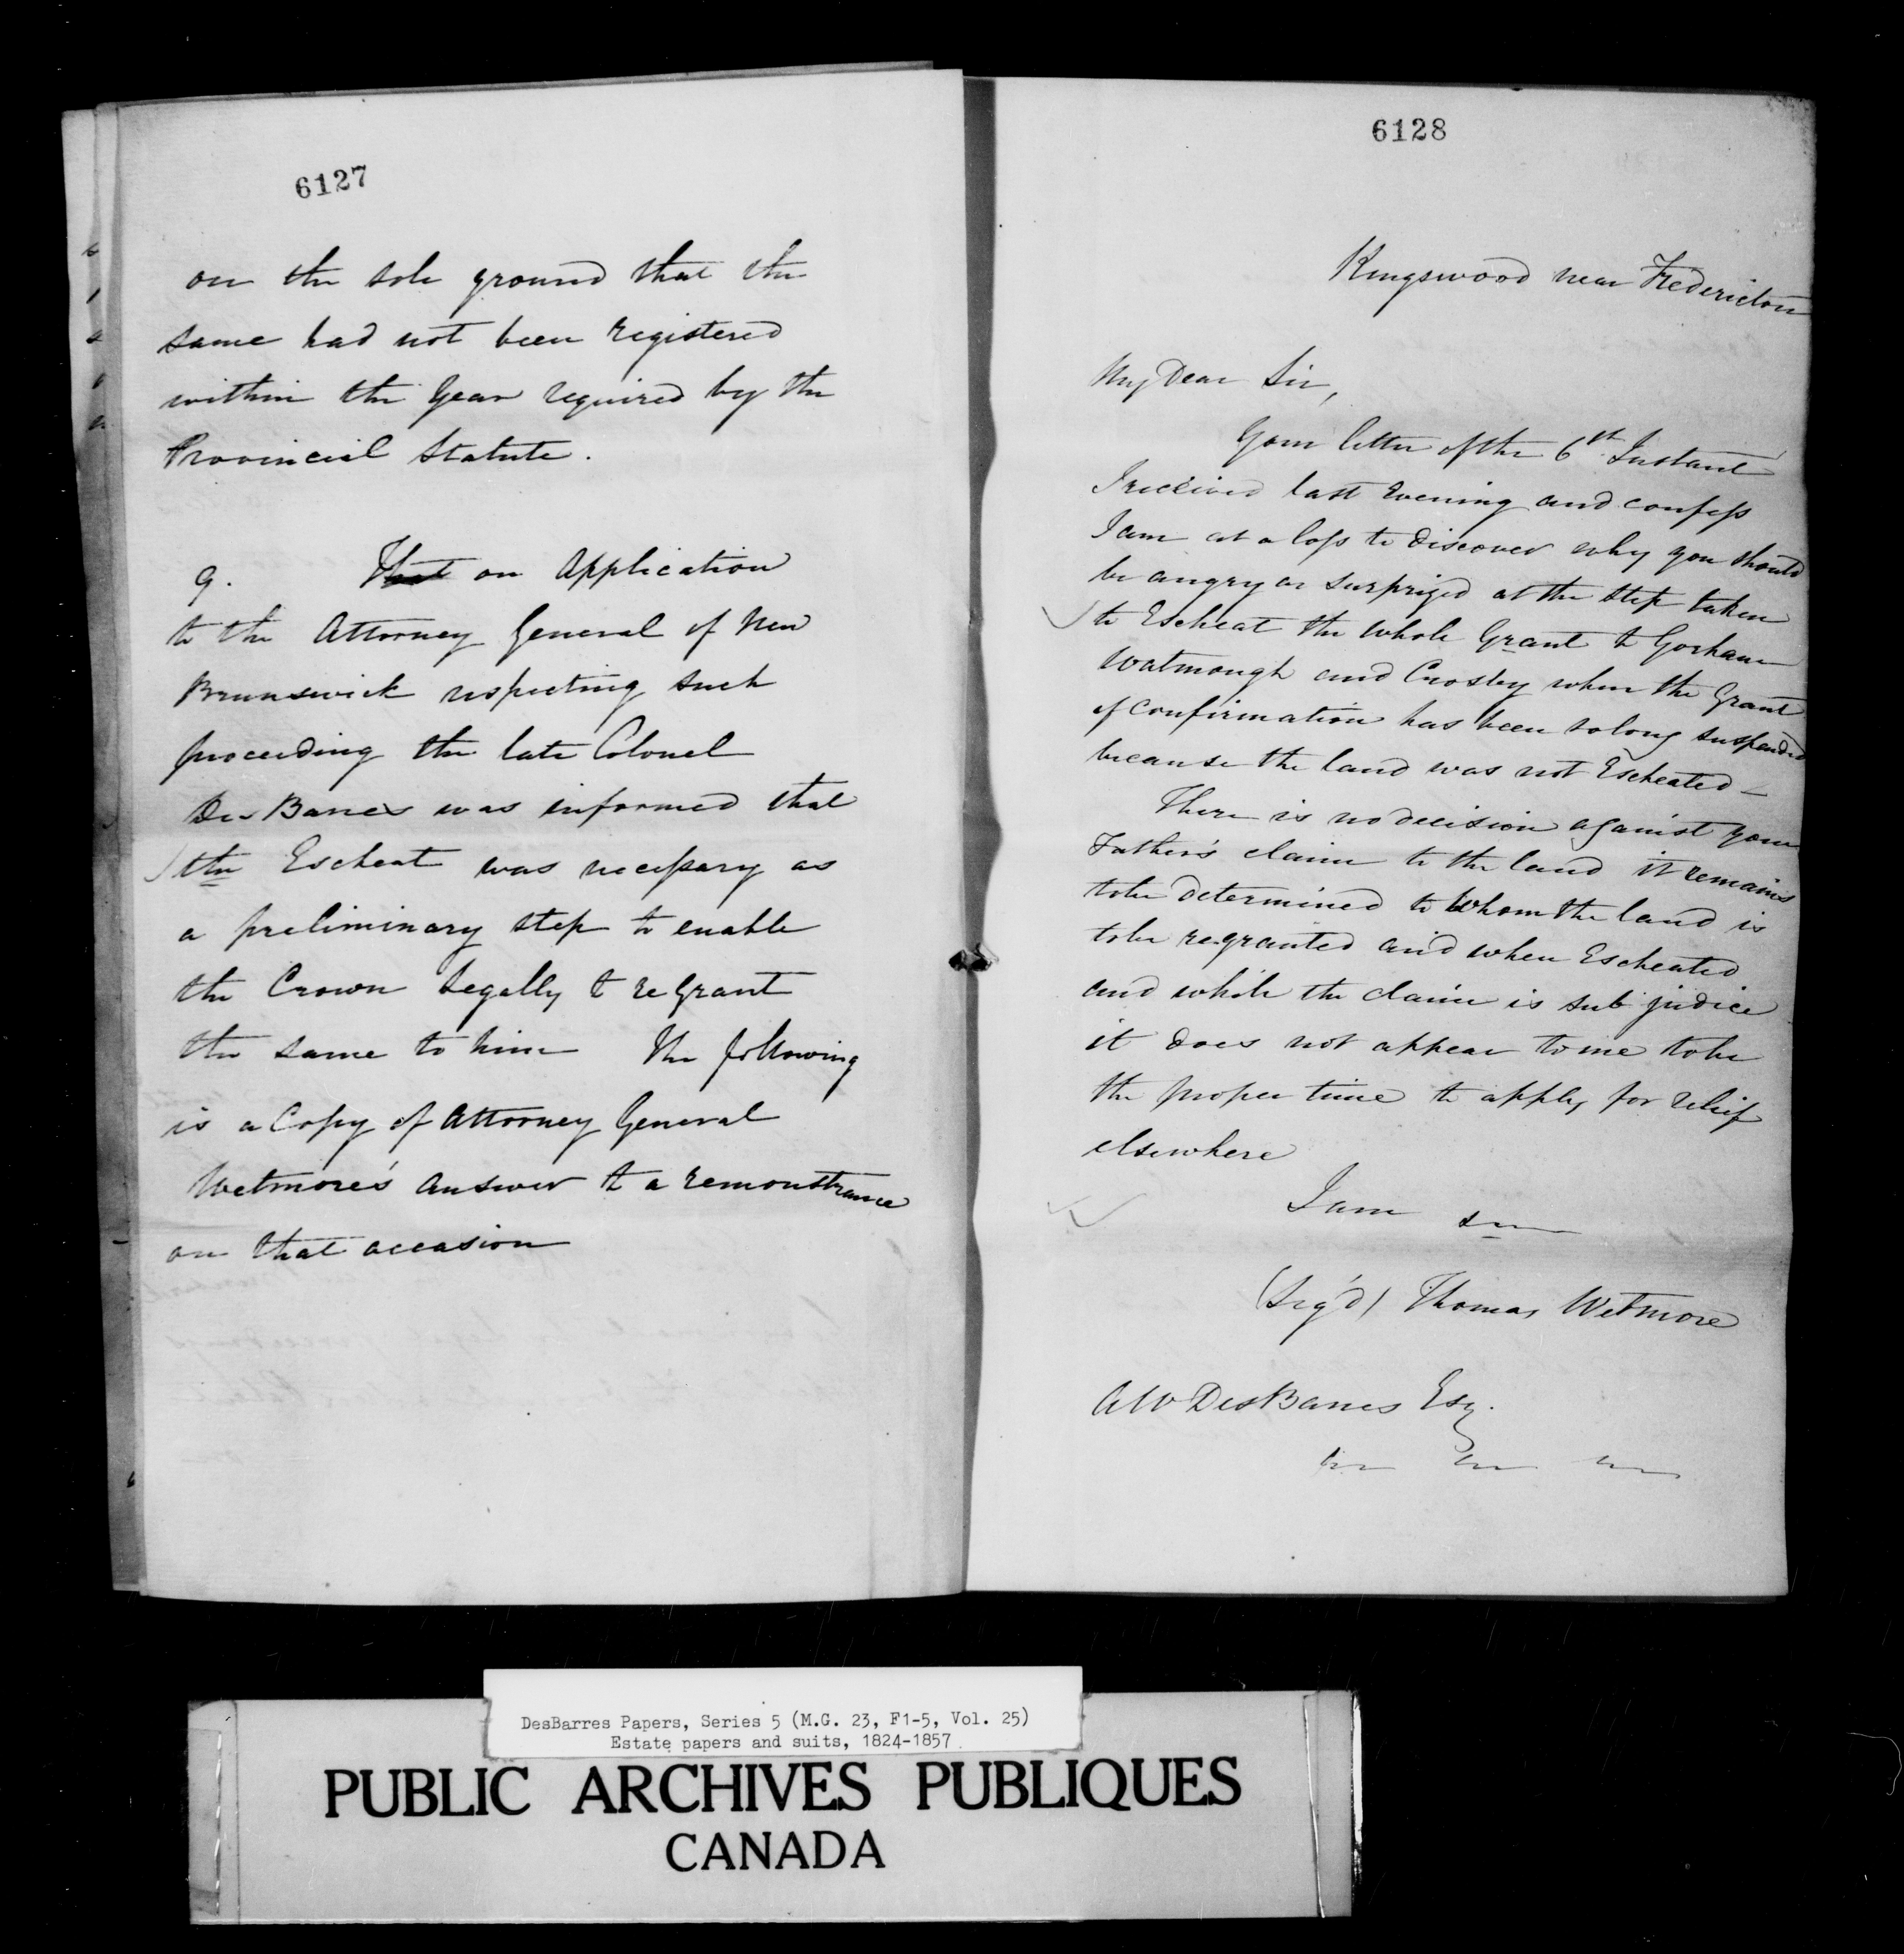 6127
on the sole ground that the
same had not been registered
within the Year required by the
Provincial Statute.
9. That on Application
to the Attorney General of New
Brunswick respecting such
proceeding the late Colonel
DesBarres was informed that
the Escheat was necessary as
a preliminary step to enable
the Crown legally to regrant
the same to him The following
is a Copy of Attorney General
Wetmore's answer to a remonstrance
on that occasion
6128
Kingswood near Fredericton
My Dear Sir,
Your letter of the 6th Instant
I received last Evening and confess
I am at a loss to discover why you should
be angry or surprized at the step taken
to Escheat the whole Grant to Gorham
Watmough and Crosley when the Grant
of Confirmation has been so long suspended
because the land was not Escheated –
There is no decision against your
Father's claim to the land it remains
to be determined to whom the land is
to be re.granted and when Escheated
and while the claim is sub judice
it does not appear to me to be
the proper time to apply for relief
elsewhere
I am
(Sig'd) Thomas Wetmore
AW DesBarres Esq.
DesBarres Papers, Series 5 (M.G. 23, F1-5, Vol. 25)
Estate papers and suits, 1824-1857
PUBLIC ARCHIVES PUBLIQUES
CANADA